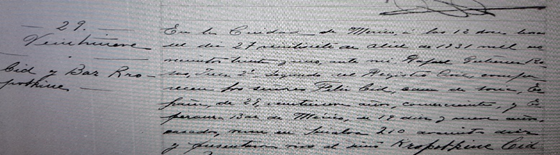 29.
Veintinueve
Cid y Baz Kro-
potkine.
En la Ciudad de México, a las 12 doce horas
del día 27 veintisiete de Abril de 1931 mil no-
vecientos treinta y uno, ante mí Rafael
Juez 2º Segundo del Registro Civil compa-
recen los señores Félix Cid, de Soria, Es-
paña, de 29 veintinueve años, comerciante, y
Baz de México, de 19 diez y nueve años,
casados, viven en 210 doscientos diez
y presentan vivo al niño Kropotkine Cid